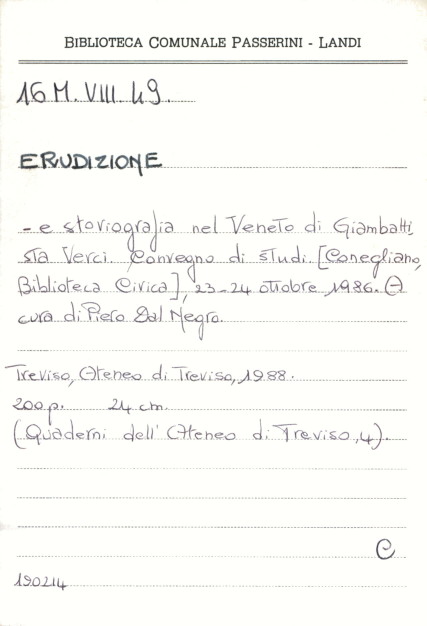 BIBLIOTECA COMUNALE PASSERINI - LANDI
16 M. VIII. 49.
ERUDIZIONE
- e storiografia nel Veneto di Giambatti
sta Verci. Convegno di studi. [Conegliano,
Biblioteca Civica], 23-24 ottobre 1986. A
cura di Piero Dal Negro.
Treviso, Ateneo di Treviso, 1988.
200 p. 24 cm.
(Quaderni dell' Ateneo di Treviso, 4).
C
190214